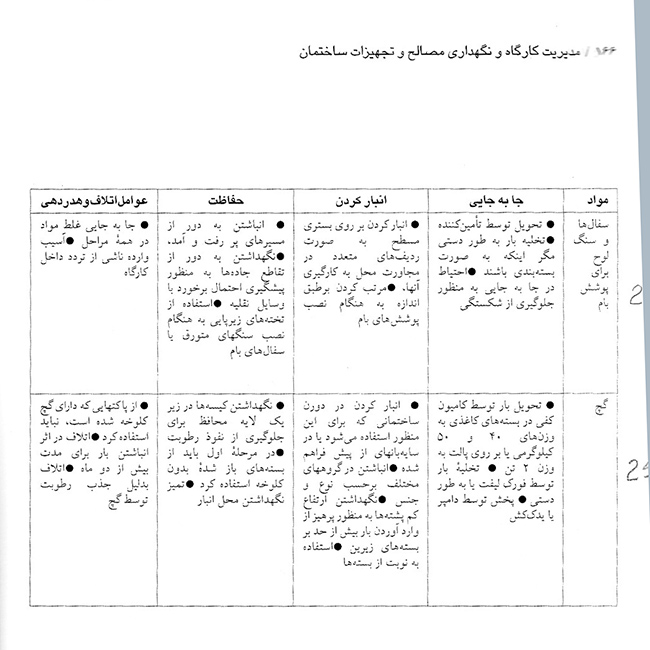 ۱۶۶ / مدیریت کارگاه و نگهداری مصالح و تجهیزات ساختمان
مواد
جا به جایی
انبار کردن
حفاظت
عوامل اتلاف و هدردهی
سفال‌ها
و سنگ
لوح
برای
پوشش
بام
● تحویل توسط تأمین‌کننده
● تخلیه بار به طور دستی
مگر اینکه به صورت
بسته‌بندی باشند ● احتیاط
در جا به جایی به منظور
جلوگیری از شکستگی
● انبار کردن بر روی بستری
مسطح به صورت
ردیف‌های متعدد در
مجاورت محل به کارگیری
آنها. ● مرتب کردن برطبق
اندازه به هنگام نصب
پوشش‌های بام
● انباشتن به دور از
مسیرهای پر رفت و آمد.
● نگهداشتن به دور از
تقاطع جاده‌ها به منظور
پیشگیری احتمال برخورد با
وسایل نقلیه ● استفاده از
تخته‌های زیرپایی به هنگام
نصب سنگهای متورق یا
سفال‌های بام
● جا به جایی غلط مواد
در همهٔ مراحل ● آسیب
وارده ناشی از تردد داخل
کارگاه
گچ
● تحویل بار توسط کامیون
کفی در بسته‌های کاغذی به
وزن‌های ۴۰ و ۵۰
کیلوگرمی یا بر روی پالت به
وزن ۲ تن ● تخلیهٔ بار
توسط فورک لیفت یا به طور
دستی ● پخش توسط دامپر
یا یدک‌کش
● انبار کردن در دورن
ساختمانی که برای این
منظور استفاده می‌شود یا در
سایه‌بانهای از پیش فراهم
شده ● انباشتن در گروههای
مختلف برحسب نوع و
جنس ● نگهداشتن ارتفاع
کم پشته‌ها به منظور پرهیز از
وارد آوردن بار بیش از حد بر
بسته‌های زیرین ● استفاده
به نوبت از بسته‌ها
● نگهداشتن کیسه‌ها در زیر
یک لایه محافظ برای
جلوگیری از نفوذ رطوبت
● در مرحلهٔ اول باید از
بسته‌های باز شدهٔ بدون
کلوخه استفاده کرد ● تمیز
نگهداشتن محل انبار
● از پاکتهایی که دارای گچ
کلوخه شده است، نباید
استفاده کرد ● اتلاف در اثر
انباشتن بار برای مدت
بیش از دو ماه ● اتلاف
بدلیل جذب رطوبت
توسط گچ